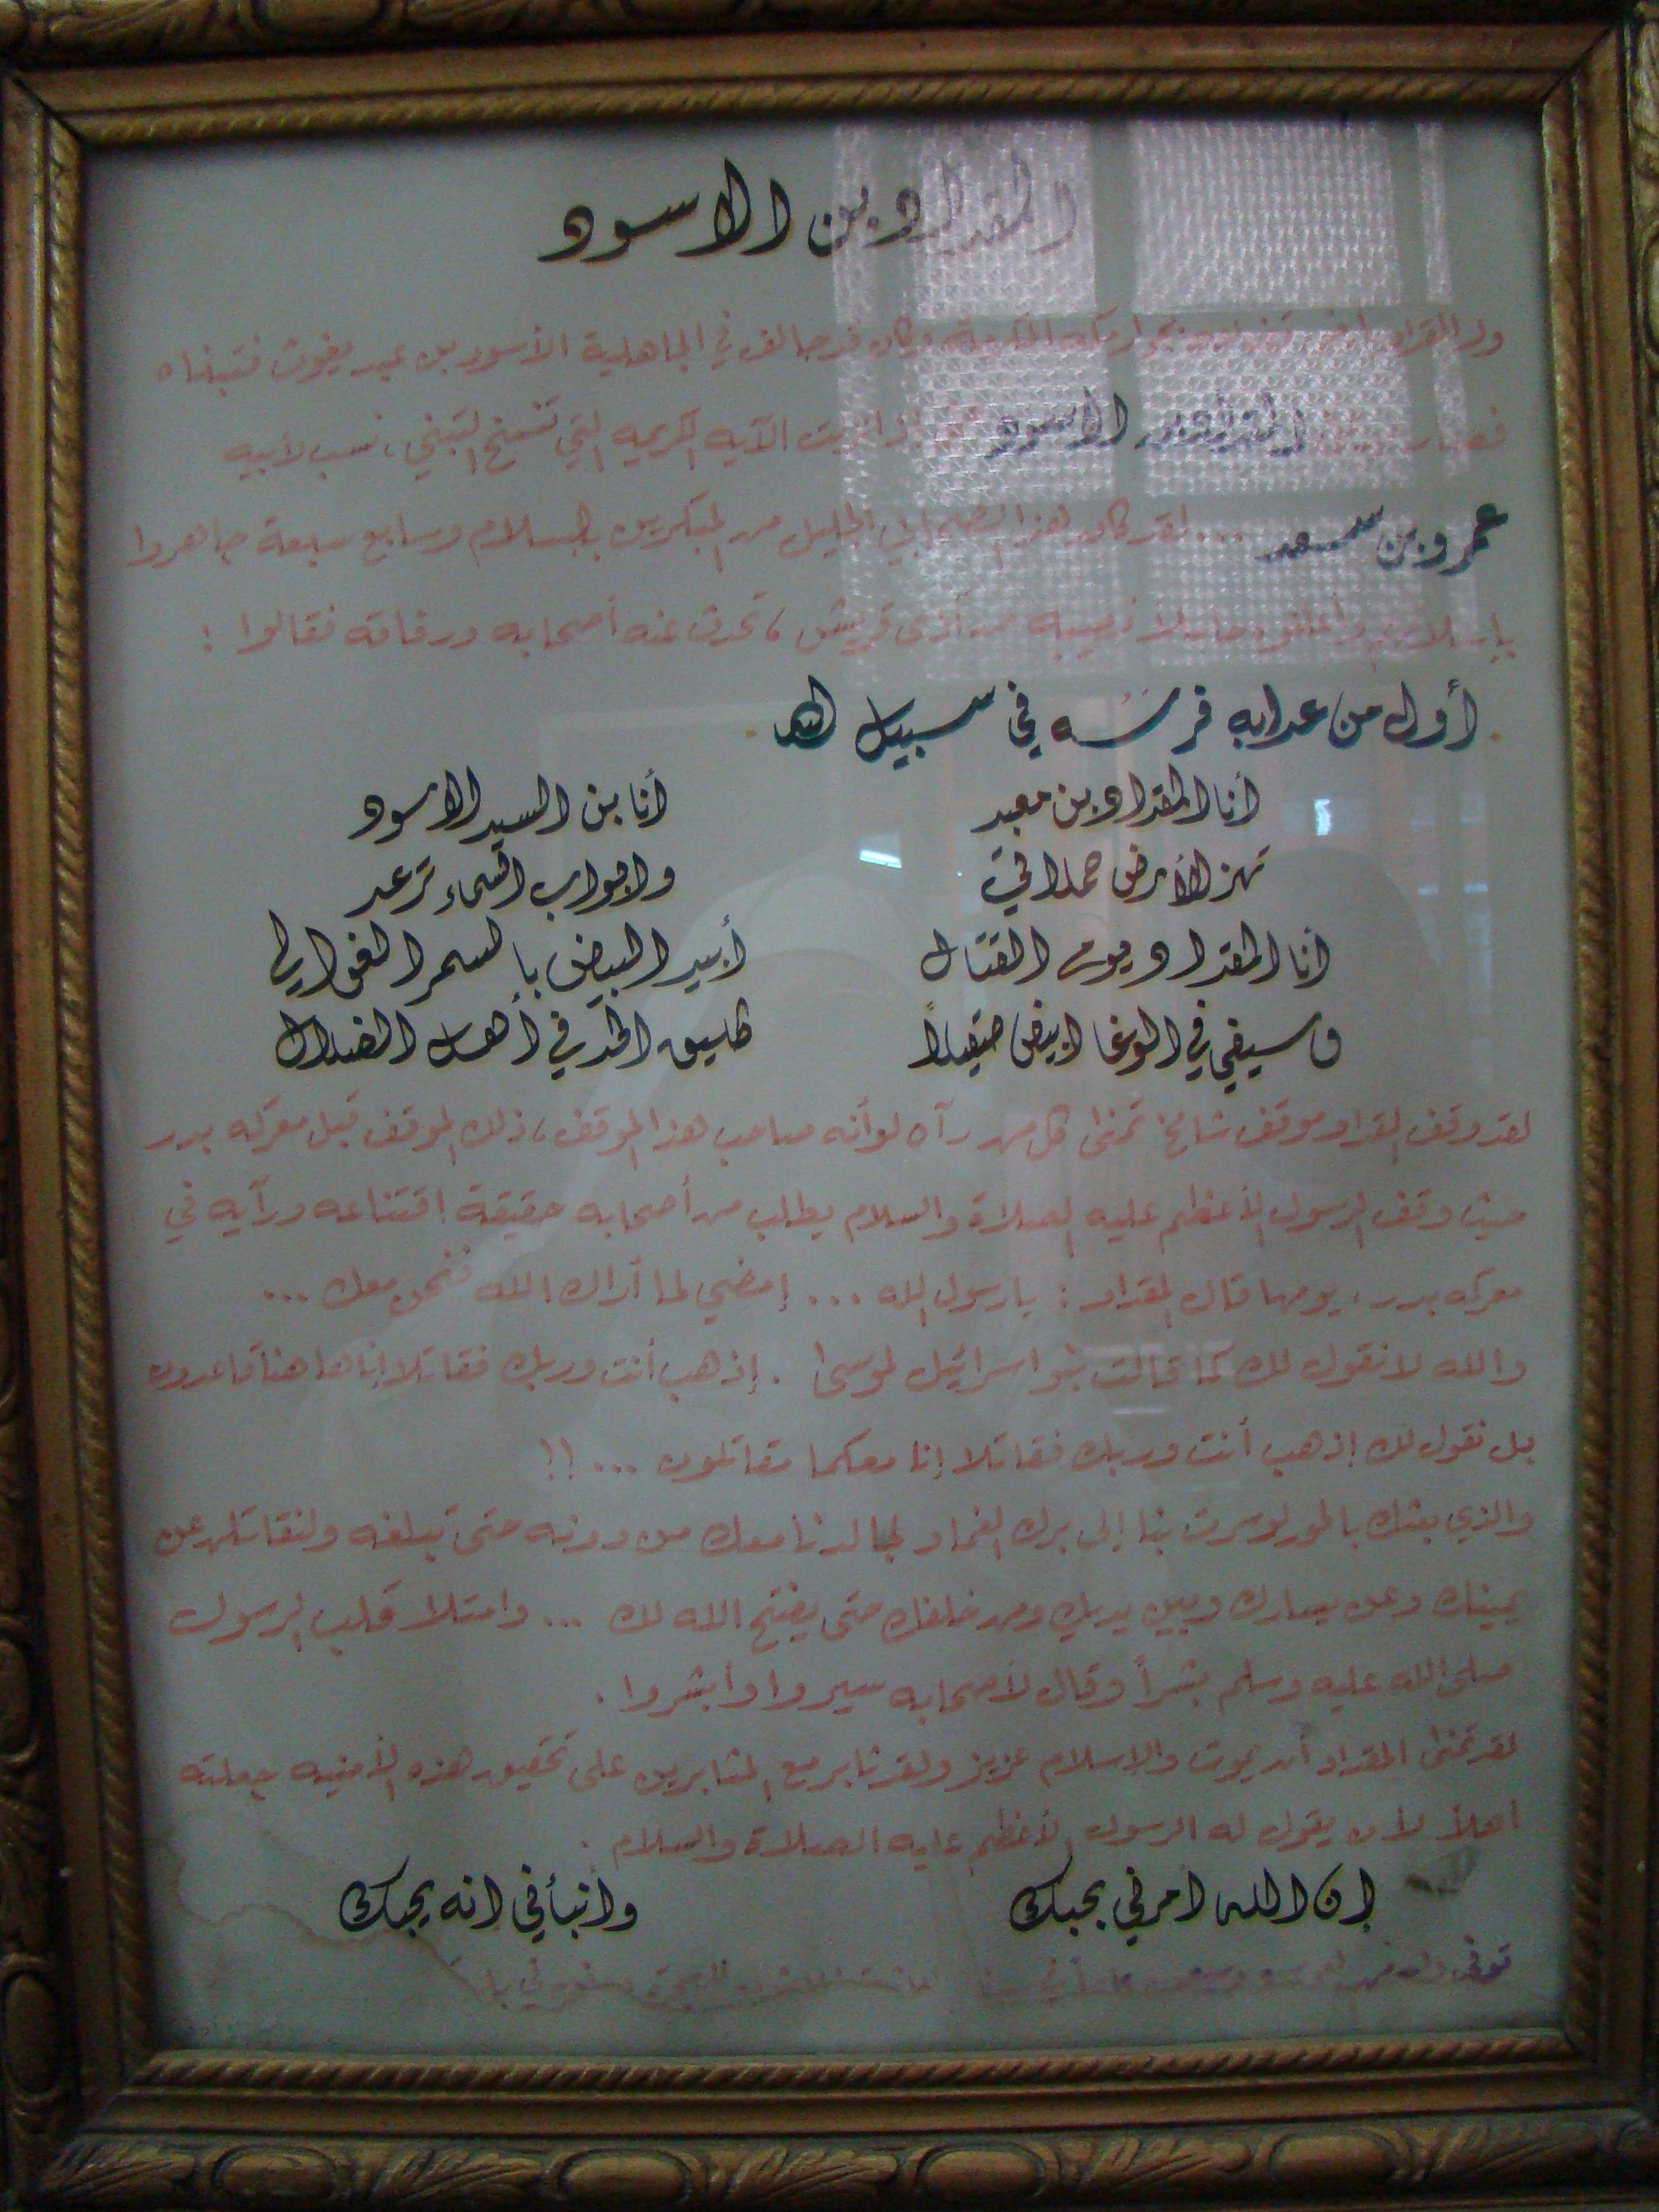 المقداد بن الاسود
ولد المقداد بجوار مكة المكرمة وكان قد حالف في الجاهلية الأسود بن عبد يغوث فتبناه
فصار يدعى المقداد بن الأسود حتى إذا نزلت الآيه الكريمه التي تنسخ التبني، نسب لأبيه
عمرو بن سعد ... لقد كان هذا الصحابي الجليل من المبكرين بالإسلام وسابع سبعة جاهروا
بإسلامهم وأعلنوه حاملاً نصيبه من أذى قريش، تحدث عنه أصحابه ورفاقه فقالوا :
أول من عدا به فرسه في سبيل الله
أنا المقداد بن معبد أنا بن السيد الاسود
تهز الأرض حملاتي وابواب السماء ترعد
انا المقداد يوم القتال أبيد البيض بالسمر الغوالي
وسيفي في الوغا ابيض صقيلاً طليق الحد في أهل الضلال
لقد وقف المقداد موقف شامخ تمنى كل من رآه لو أنه صاحب هذا الموقف، ذلك الموقف قبل معركه بدر
حيث وقف الرسول الأعظم عليه الصلاة والسلام يطلب من أصحابه حقيقة اقتناعه ورآيه في
معركه بدر. يومها قال المقداد : يا رسول الله ... إمضي لما أراك الله فنحن معك ...
والله لا نقول لك كما قالت بنو اسرائيل لموسى . إذهب أنت وربك فقاتلا إنا ها هنا قاعدون
بل نقول لك إذهب أنت وربك فقاتلا إنا معكما مقاتلون ... !!
والذي بعثك بالحق لو سرت بنا إلى برك الغماد لجالدنا معك من دونه حتى تبلغه ولنقاتلن عن
يمينك وعن يسارك وبين يديك ومن خلفك حتى يفتح الله لك ... وامتلا قلب الرسول
صلى الله عليه وسلم بشراً وقال لأصحابه سيروا وأبشروا .
لقد تمنى المقداد أن يموت والإسلام عزيز ولقد ثابر مع المثابرين على تحقيق هذه الأمنيه جعلته
أهلاً لأن يقول له الرسول الأعظم عليه الصلاة والسلام .
إن الله امرني بحبك وأنبأني انه يحبك
توفي وله من العمر